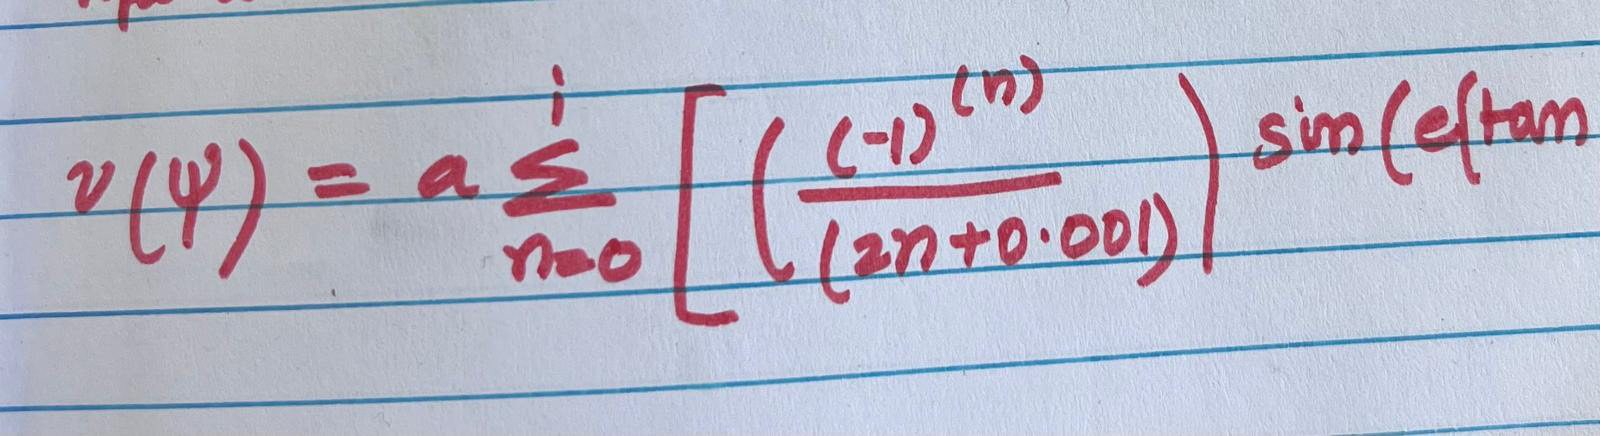 v(ψ) = a \sum_{n=0}^{i} [ ( \frac{(-1)^{(n)}}{(2n+0.001)} ) sin(e(tan